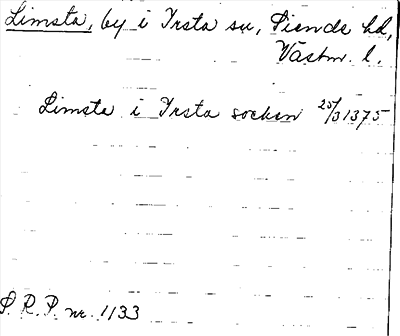 Limsta, by i Irsta sn, Siende hd,
Västm. l.
Limsta i Irsta socken 25/3 1375
S. R. P. nr. 1133